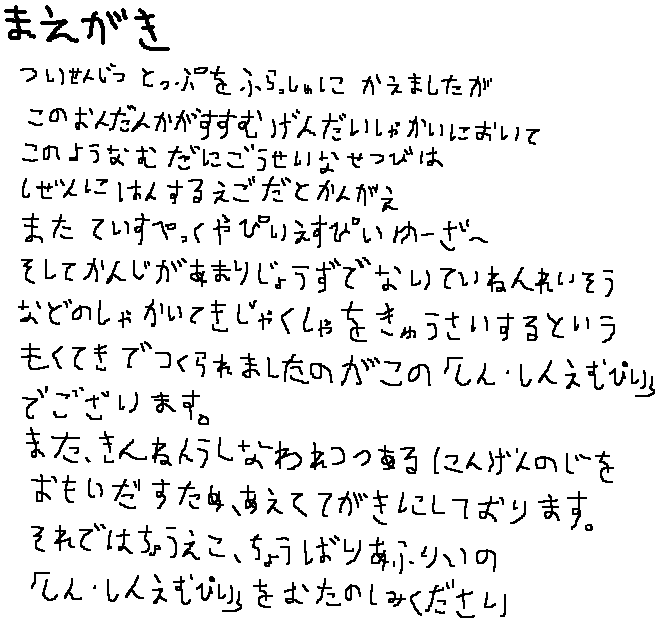 まえがき
ついせんじつ とっぷを ふらっしゅに かえましたが
このおんだんかがすすむ げんだいしゃかいにおいて
このような むだにごうせいな せつびは
しぜんにはんするえごだとかんがえ
また ていすぺっくや ぴいえすぴい ゆーざ〜
そしてかんじが あまりじょうずでない ていねんれいそう
などの しゃかいてきじゃくしゃを きゅうさいするという
もくてきでつくられましたのが この「しん・しんえむぴい」
でございます。
また、きんねんうしなわれつつある にんげんのじを
おもいだすため、あえててがきにしております。
それではちょうえこ、ちょうばりあふりいの
「しん・しんえむぴい」をおたのしみください